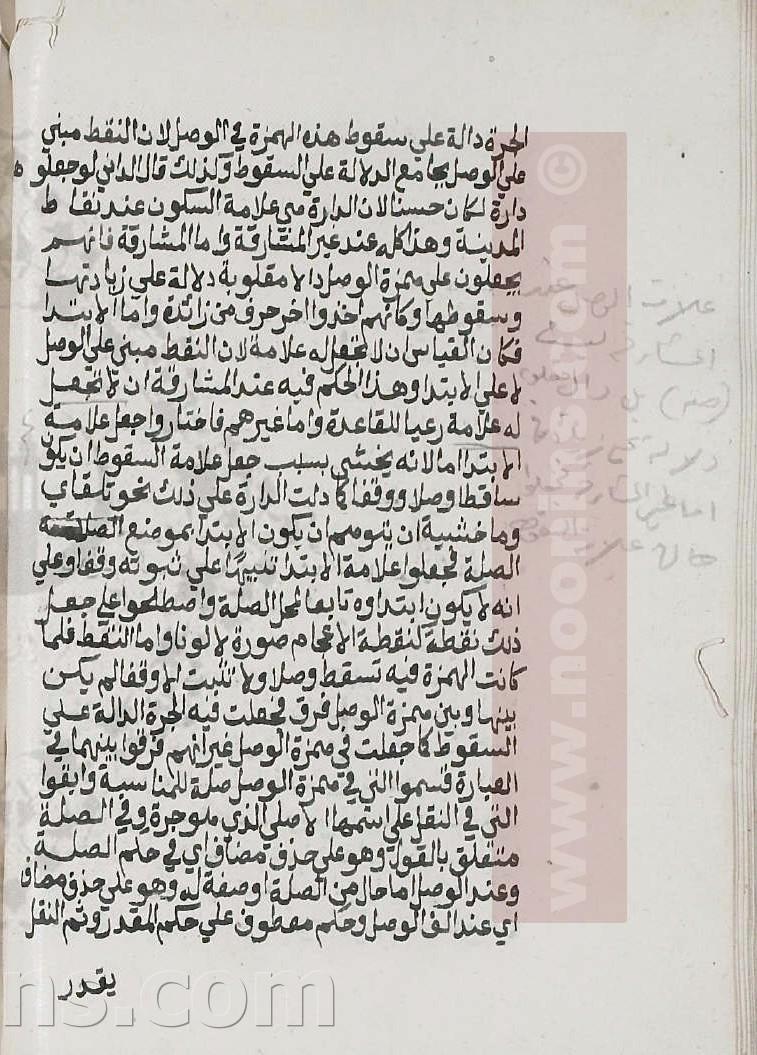 الجرة دالة علي سقوط هذه الهمزة في الوصل لان النقط مبني
علي الوصل بجامع الدلالة علي السقوط وكذلك قال الداني لو جعلوه
دارة لكان حسنا لان الدارة هي علامة السكون عند نقاط
المدينة وهذا كله عند غير المشارقة واما المشارقة فانهم
يجعلون علي همزة الوصل دالا مقلوبة دلالة علي زيادتها
وسقوطها وكانهم اخذوا اخر حرف من زائدة واما الابتدا
فكان القياس ان لا تجعل له علامة لان النقط مبني علي الوصل
لا علي الابتدا وهذا الحكم فيه عند المشارقة ان لا تجعل
له علامة رعيا للقاعدة واما غيرهم فاختاروا جعل علامة
الابتدا اما لانه يخشي بسبب جعل علامة السقوط ان يكون
ساقطا وصلا ووقفا كما دلت الدارة علي ذلك نحو تلقاي
وما خشية ان يتوهم ان يكون الابتدا بموضع
الصلة فجعلوا علامة الابتدا تنبيها علي ثبوته وقفا وعلي
انه لا يكون ابتداوه تابعا لمحل الصلة واصطلحوا علي جعل
ذلك نقطة كنقطة الاعجام صورة لا لونا واما النقط فلما
كانت الهمزة فيه تسقط وصلا ولا تثبت الا وقفا لم يكن
بينها وبين همزة الوصل فرق فجعلت فيه الجرة الدالة علي
السقوط كما جعلت في همزة الوصل غير انهم فرقوا بينهما في
العبارة فسموا التي في همزة الوصل صلة للمناسبة وابقوا
التي في النقل علي اسمها الاصلي الذي هو جرة وفي الصلة
متعلق بالقول وهو علي حذف مضاف اي في حكم الصلة
وعند الوصل اما حال من الصلة او صفة له وهو علي حذف مضاف
اي عند الف الوصل وحكم معطوف علي حكم المقدر وثم النقل
يقدر
علامت
عند
المشارقه
(صفر) بل دال مقلوبه
دلالة
www.noormags.com
ns.com